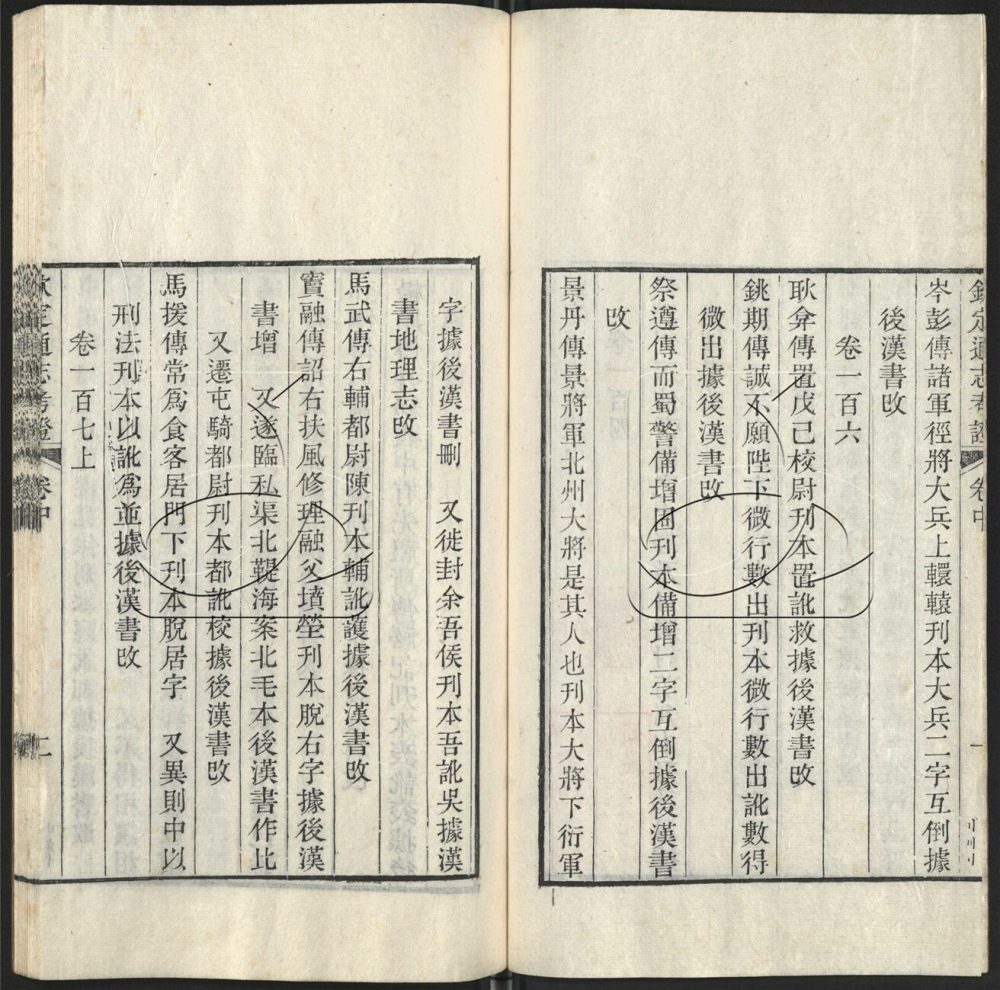 欽定通志考證 卷中 一
岑彭傳諸軍徑將大兵上轘轅刊本大兵二字互倒據
後漢書改
卷一百六
耿弇傳置戊己校尉刋本置訛救據後漢書改
銚期傳誠不願陛下微行數出刊本微行數出訛數得
微出據後漢書改
祭遵傳而蜀警備增固刋本備增二字互倒據後漢書
改
景丹傳景將軍北州大將是其人也刋本大將下衍軍
字據後漢書刪 又徙封余吾侯刋本吾訛吳據漢
書地理志改
馬武傳右輔都尉陳刋本輔訛護據後漢書改
竇融傳詔右扶風修理融父墳塋刋本脫右字據後漢
書增 又遂臨私渠北鞮海案北毛本後漢書作比
又遷屯騎都尉刋本都訛校據後漢書改
馬援傳常爲食客居門下刋本脫居字 又異則中以
刑法刋本以訛爲並據後漢書改
卷一百七上
欽定通志考證 卷中 二